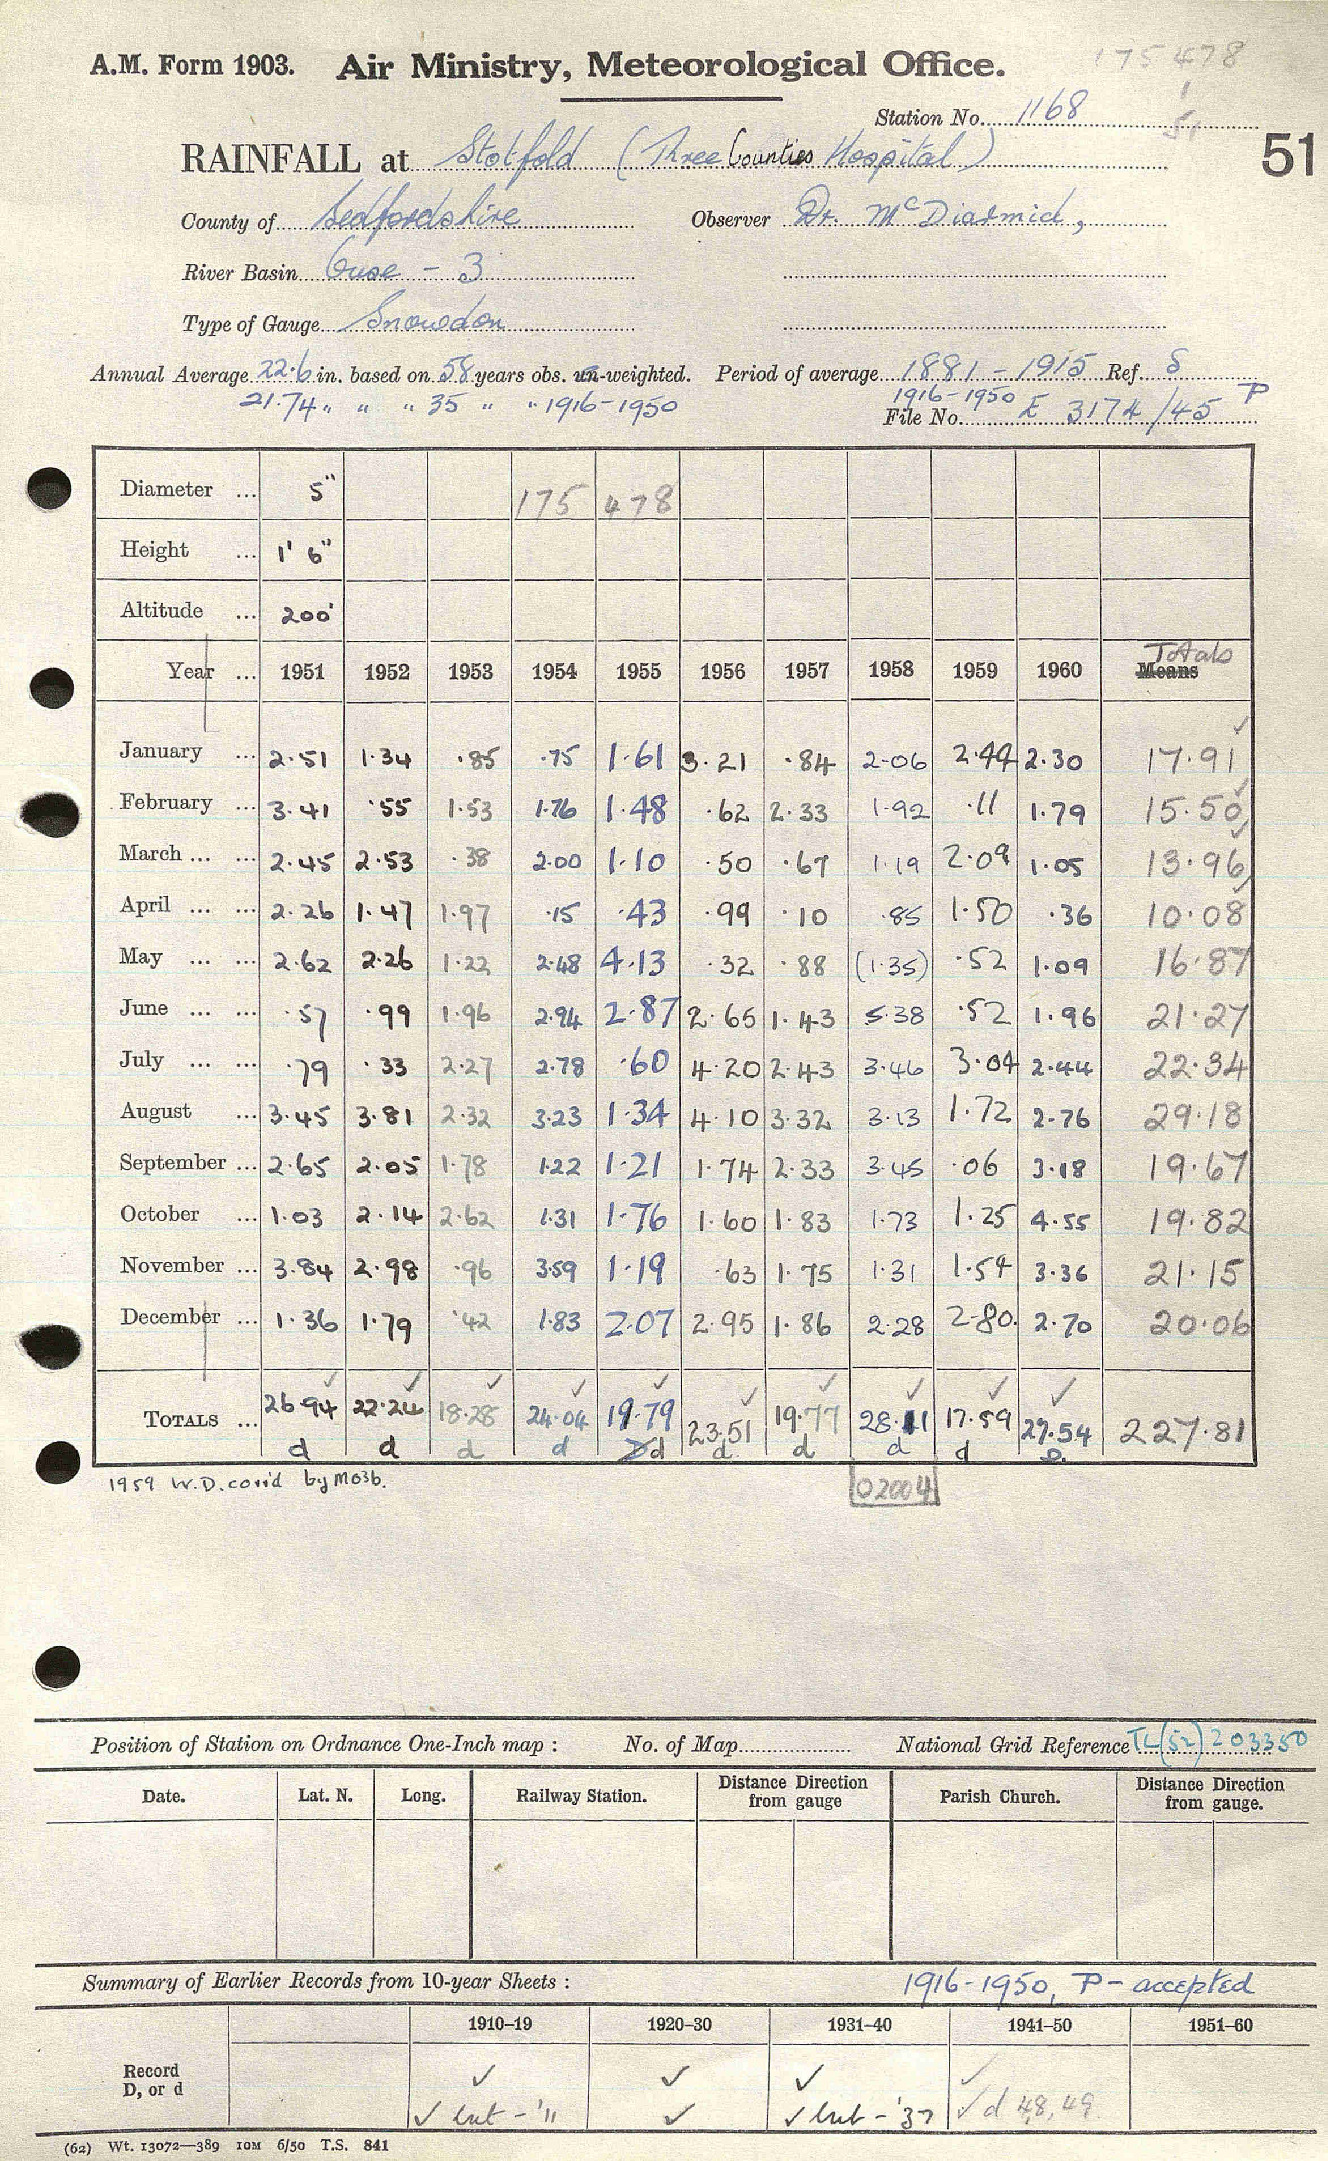 175478
A.M. Form 1903. Air Ministry, Meteorological Office.
Station No. 1168
51
RAINFALL at Stotfold (Three Counties Hospital)
51
County of Bedfordshire Observer Dr. McDiarmid,
River Basin Ouse - 3
Type of Gauge Snowdon
Annual Average 22.6 in. based on 58 years obs. un-weighted. Period of average 1881 - 1915 Ref. S
21.74 " " " 35 " " 1916-1950 1916-1950 P
File No. E 3174/45
Diameter ... 5" 175 478
Height ... 1' 6"
Altitude ... 200'
Year ... 1951 1952 1953 1954 1955 1956 1957 1958 1959 1960 Means Totals
January ... 2.51 1.34 .85 .75 1.61 3.21 .84 2.06 2.44 2.30 17.91 ✓
February ... 3.41 .55 1.53 1.76 1.48 .62 2.33 1.92 .11 1.79 15.50 ✓
March ... ... 2.45 2.53 .38 2.00 1.10 .50 .67 1.19 2.09 1.05 13.96 ✓
April ... ... 2.26 1.47 1.97 .15 .43 .99 .10 .85 1.50 .36 10.08 ✓
May ... ... 2.62 2.26 1.22 2.48 4.13 .32 .88 (1.35) .52 1.09 16.87
June ... ... .57 .99 1.96 2.94 2.87 2.65 1.43 5.38 .52 1.96 21.27
July ... ... .79 .33 2.27 2.78 .60 4.20 2.43 3.46 3.04 2.44 22.34
August ... 3.45 3.81 2.32 3.23 1.34 4.10 3.32 3.13 1.72 2.76 29.18
September ... 2.65 2.05 1.78 1.22 1.21 1.74 2.33 3.45 .06 3.18 19.67
October ... 1.03 2.14 2.62 1.31 1.76 1.60 1.83 1.73 1.25 4.55 19.82
November ... 3.84 2.98 .96 3.59 1.19 .63 1.75 1.31 1.54 3.36 21.15
December ... 1.36 1.79 .42 1.83 2.07 2.95 1.86 2.28 2.80 2.70 20.06
✓ ✓ ✓ ✓ ✓ ✓ ✓ ✓ ✓ ✓
TOTALS ... 26.94 22.24 18.28 24.04 19.79 23.51 19.77 28.11 17.59 27.54 227.81
d d d d d d d d d D.
1959 W.D. corr'd by MO3b. 02004
Position of Station on Ordnance One-Inch map : No. of Map National Grid Reference TL(52) 203350
Date. Lat. N. Long. Railway Station. Distance Direction from gauge Parish Church. Distance Direction from gauge.
Summary of Earlier Records from 10-year Sheets : 1916-1950, P - accepted
1910–19 1920–30 1931–40 1941–50 1951–60
Record ✓ ✓ ✓ ✓
D, or d ✓ but - '11 ✓ ✓ but - '37 ✓ d 48, 49
(62) Wt. 13072—389 10M 6/50 T.S. 841